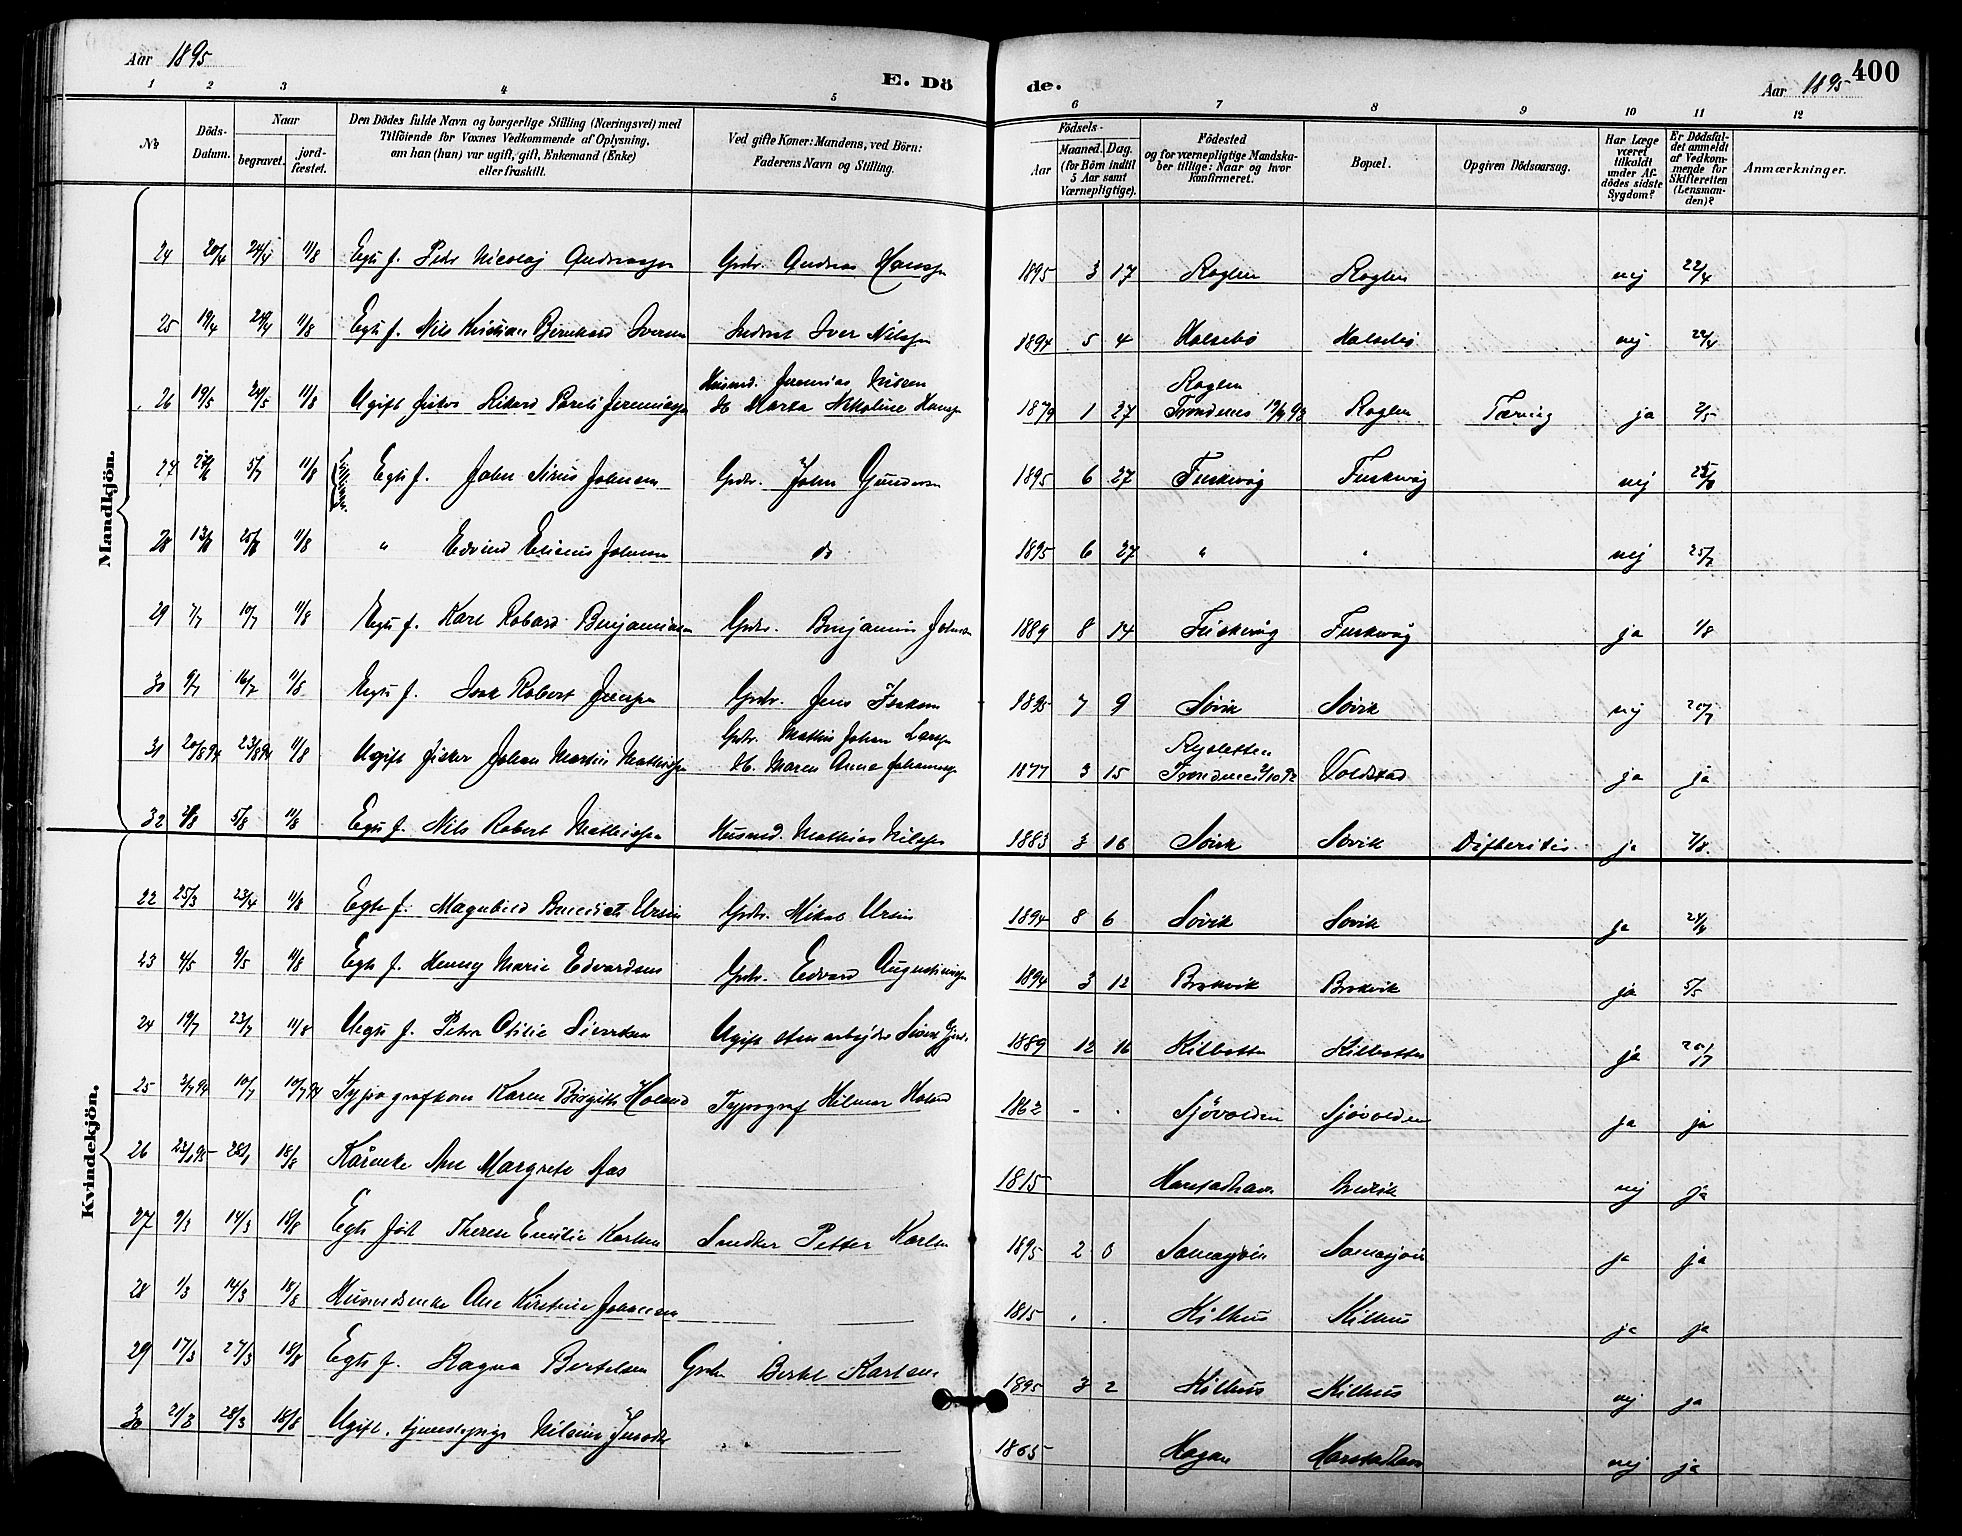 Aar 1895
E. Dö
de.
Aar 1895
400
1 2 3 4 5 6 7 8 9 10 11 12
No
Döds-Datum.
Naar
begravet.
jord-fæstet.
Den Dödes fulde Navn og borgerlige Stilling (Næringsvei) med
Tilföiende for Voxnes Vedkommende af Oplysning,
om han (hun) var ugift, gift, Enkemand (Enke)
eller fraskilt.
Ved gifte Koner: Mandens, ved Börn:
Faderens Navn og Stilling.
Födsels-
Aar
Maaned. Dag.
(for Börn indtil
5 Aar samt
Værnepligtige).
Födested
og for værnepligtige Mandska-
ber tillige: Naar og hvor
konfirmeret.
Bopæl.
Opgiven Dödsaarsag.
Har Læge
været
tilkaldt
under Af-
dödes sidste
Sygdom?
Er Dödsfal-
det anmeldt
af Vedkom-
mende for
Skifteretten
(Lensman-
den)?
Anmærkninger.
Mandkjön.
24 20/4 24/4 11/8 Egte f. Peder Nicolaj Andreassen Grdr. Andreas Hanssen 1895 3 17 Roglen Roglen nej 22/4
25 19/4 24/4 11/8 Egte f. Nils Kristian Bernhard Iversen Inderst Iver Nilssen 1894 5 4 Halsebø Halsebø nej 22/4
26 19/5 24/5 11/8 Ugift fisker Rikard Jeremiassen Husmd. Jeremias
Marta Nikoline Hanssen 1879 1 27 Roglen
Trondenes 93 Roglen Tæring ja 2/5
27 5/7 11/8 Tvilling Egte f. Johan Johnsen Grdr. John Gundersen 1895 6 27 Fuskevåg Fuskevåg nej
28 11/8 " Edvind Elisius Johnsen do 1895 6 27 " " nej 25/7
29 7/7 10/7 11/8 Uegte f. Karl Robard Benjaminsen Grdr. Benjamin Johnsen 1889 8 14 Fuskevåg Fuskevåg ja 1/8
30 9/7 16/7 11/8 Uegte f. Isak Robert Jenssen Grdr. Jens Isaksen 1895 7 9 Søvik Søvik nej 20/7
31 20/8 94 23/8 94 11/8 Ugift fisker Johan Martin Mathissen Grdr. Mathis Johan Larssen
Maren Anna Johannesd. 1877 3 15 Rysletten
Trondenes 2/10 92 Voldstad ja ja
32 5/8 11/8 Egte f. Nils Robert Mathissen Husmd. Mathias Nilssen 1883 3 16 Søvik Søvik Difteritis ja 7/8.
Kvindekjön.
22 25/3 23/4 11/8 Egte f. Magnhild Benedicte Ursin Grdr. Mikal Ursin 1894 8 6 Søvik Søvik ja 24/4
23 4/5 9/5 11/8 Egte f. Henny Marie Edvardsen Grdr. Edvard Augustinussen 1894 3 12 Brokvik Brokvik ja 5/5
24 19/7 23/7 11/8 Uegte f. Petra Otilie Sivertsen Ugift stenarbejder Sivert 1889 12 16 Kilbotten Kilbotten ja 20/7
25 2/7 94 10/7 10/7 94 Typografkone Karen Birgitte Holand Typograf Hilmar Holand 1862 . . Sjøvolden Sjøvolden ja ja
26 22/1 95 28/1 18/8 Kårenke Ane Margrete Aas 1815 Harstadhavn nej ja
27 9/3 14/3 18/8 Egte fød Therese Emilie Karlsen Snedker Petter Karlsen 1895 2 0 Samasjøen Samasjøen ja ja
28 1/3 14/3 18/8 Husmdsenke Ane Kirstine Johansen 1815 . . Kilhus Kilhus ja ja
29 17/3 27/3 18/8 Egte f. Ragna Bertelsen Grdr. Bertel Karlsen 1895 3 2 Kilhus Kilhus nej ja
30 21/3 28/3 18/8 Ugift. tjenestepige 1865 Hagan Harstadhavn nej ja